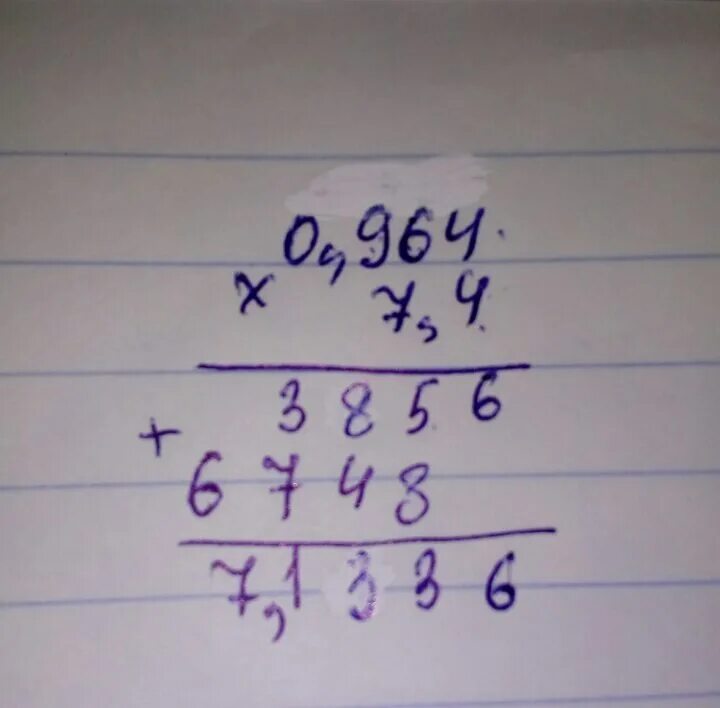 0,964
x 7,4
3856
+
6748
7,1336